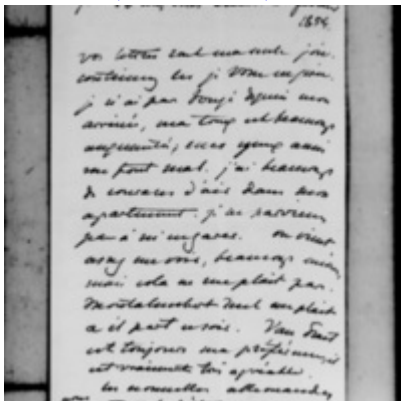 1854.
vos lettres sont ma seule joie.
continuez les je vous en prie.
je n'ai pas bougé depuis mon
arrivée, ma toux est beaucoup
augmentée, mes yeux aussi
me font mal. j'ai beaucoup
de courans d'air dans mon
apartement. je ne parviens
pas à m'en garer. on vient
assez me voir, beaucoup même
mais cela ne me plait pas.
seul me plait
a il part ce soir. Van
est toujours ma préférence, il
est vraiment très agréable.
les nouvelles allemandes